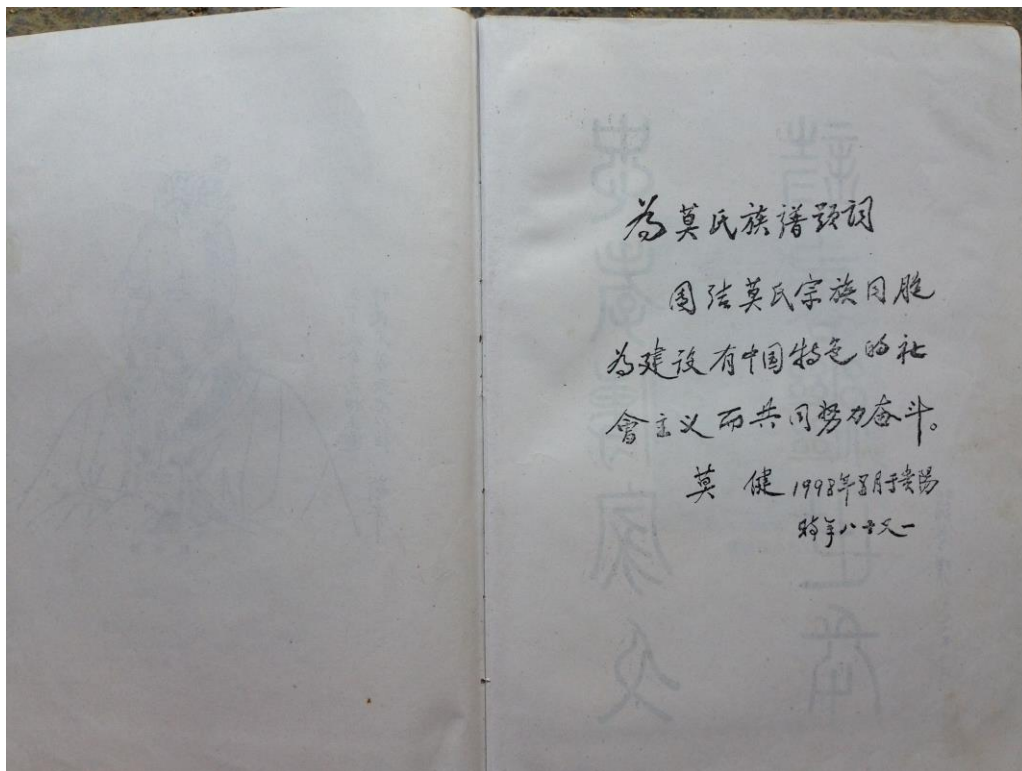 为莫氏族谱题词
团结莫氏宗族同胞
为建设有中国特色的社
會主义而共同努力奋斗。
莫健 1998年8月于贵陽
时年八十又一